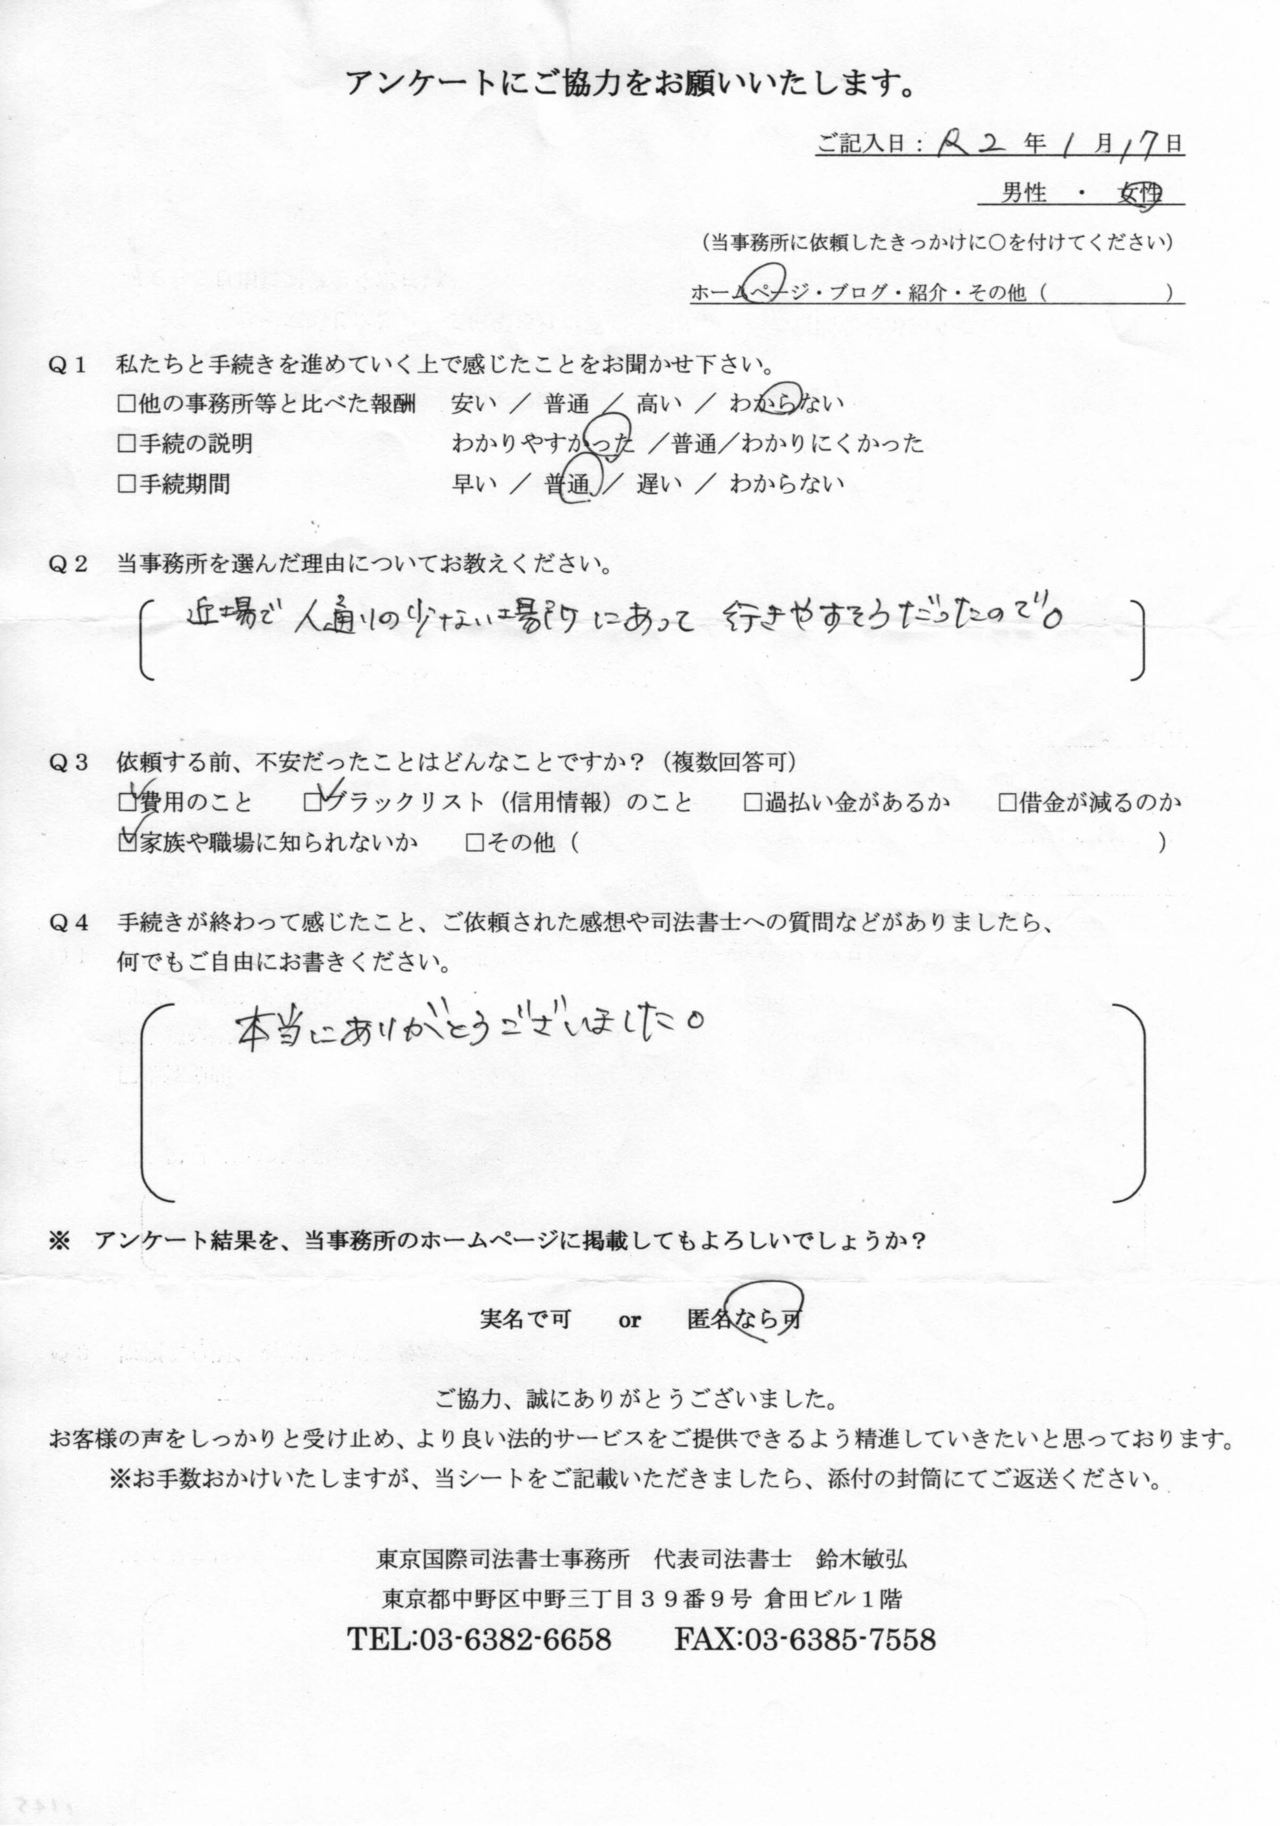 アンケートにご協力をお願いいたします。
ご記入日：R2年1月17日
男性　・　女性
（当事務所に依頼したきっかけに○を付けてください）
ホームページ・ブログ・紹介・その他（　　　　　　）
Q1　私たちと手続きを進めていく上で感じたことをお聞かせ下さい。
□他の事務所等と比べた報酬　安い ／ 普通 ／ 高い ／ わからない
□手続の説明　わかりやすかった ／普通／わかりにくかった
□手続期間　早い ／ 普通 ／ 遅い ／ わからない
Q2　当事務所を選んだ理由についてお教えください。
近場で 人通りの少ない場所にあって 行きやすそうだったので。
Q3　依頼する前、不安だったことはどんなことですか？（複数回答可）
☑費用のこと　☑ブラックリスト（信用情報）のこと　□過払い金があるか　□借金が減るのか
☑家族や職場に知られないか　□その他（　　　　　　）
Q4　手続きが終わって感じたこと、ご依頼された感想や司法書士への質問などがありましたら、
何でもご自由にお書きください。
本当にありがとうございました。
※　アンケート結果を、当事務所のホームページに掲載してもよろしいでしょうか？
実名で可　or　匿名なら可
ご協力、誠にありがとうございました。
お客様の声をしっかりと受け止め、より良い法的サービスをご提供できるよう精進していきたいと思っております。
※お手数おかけいたしますが、当シートをご記載いただきましたら、添付の封筒にてご返送ください。
東京国際司法書士事務所　代表司法書士　鈴木敏弘
東京都中野区中野三丁目３９番９号 倉田ビル１階
TEL:03-6382-6658　FAX:03-6385-7558